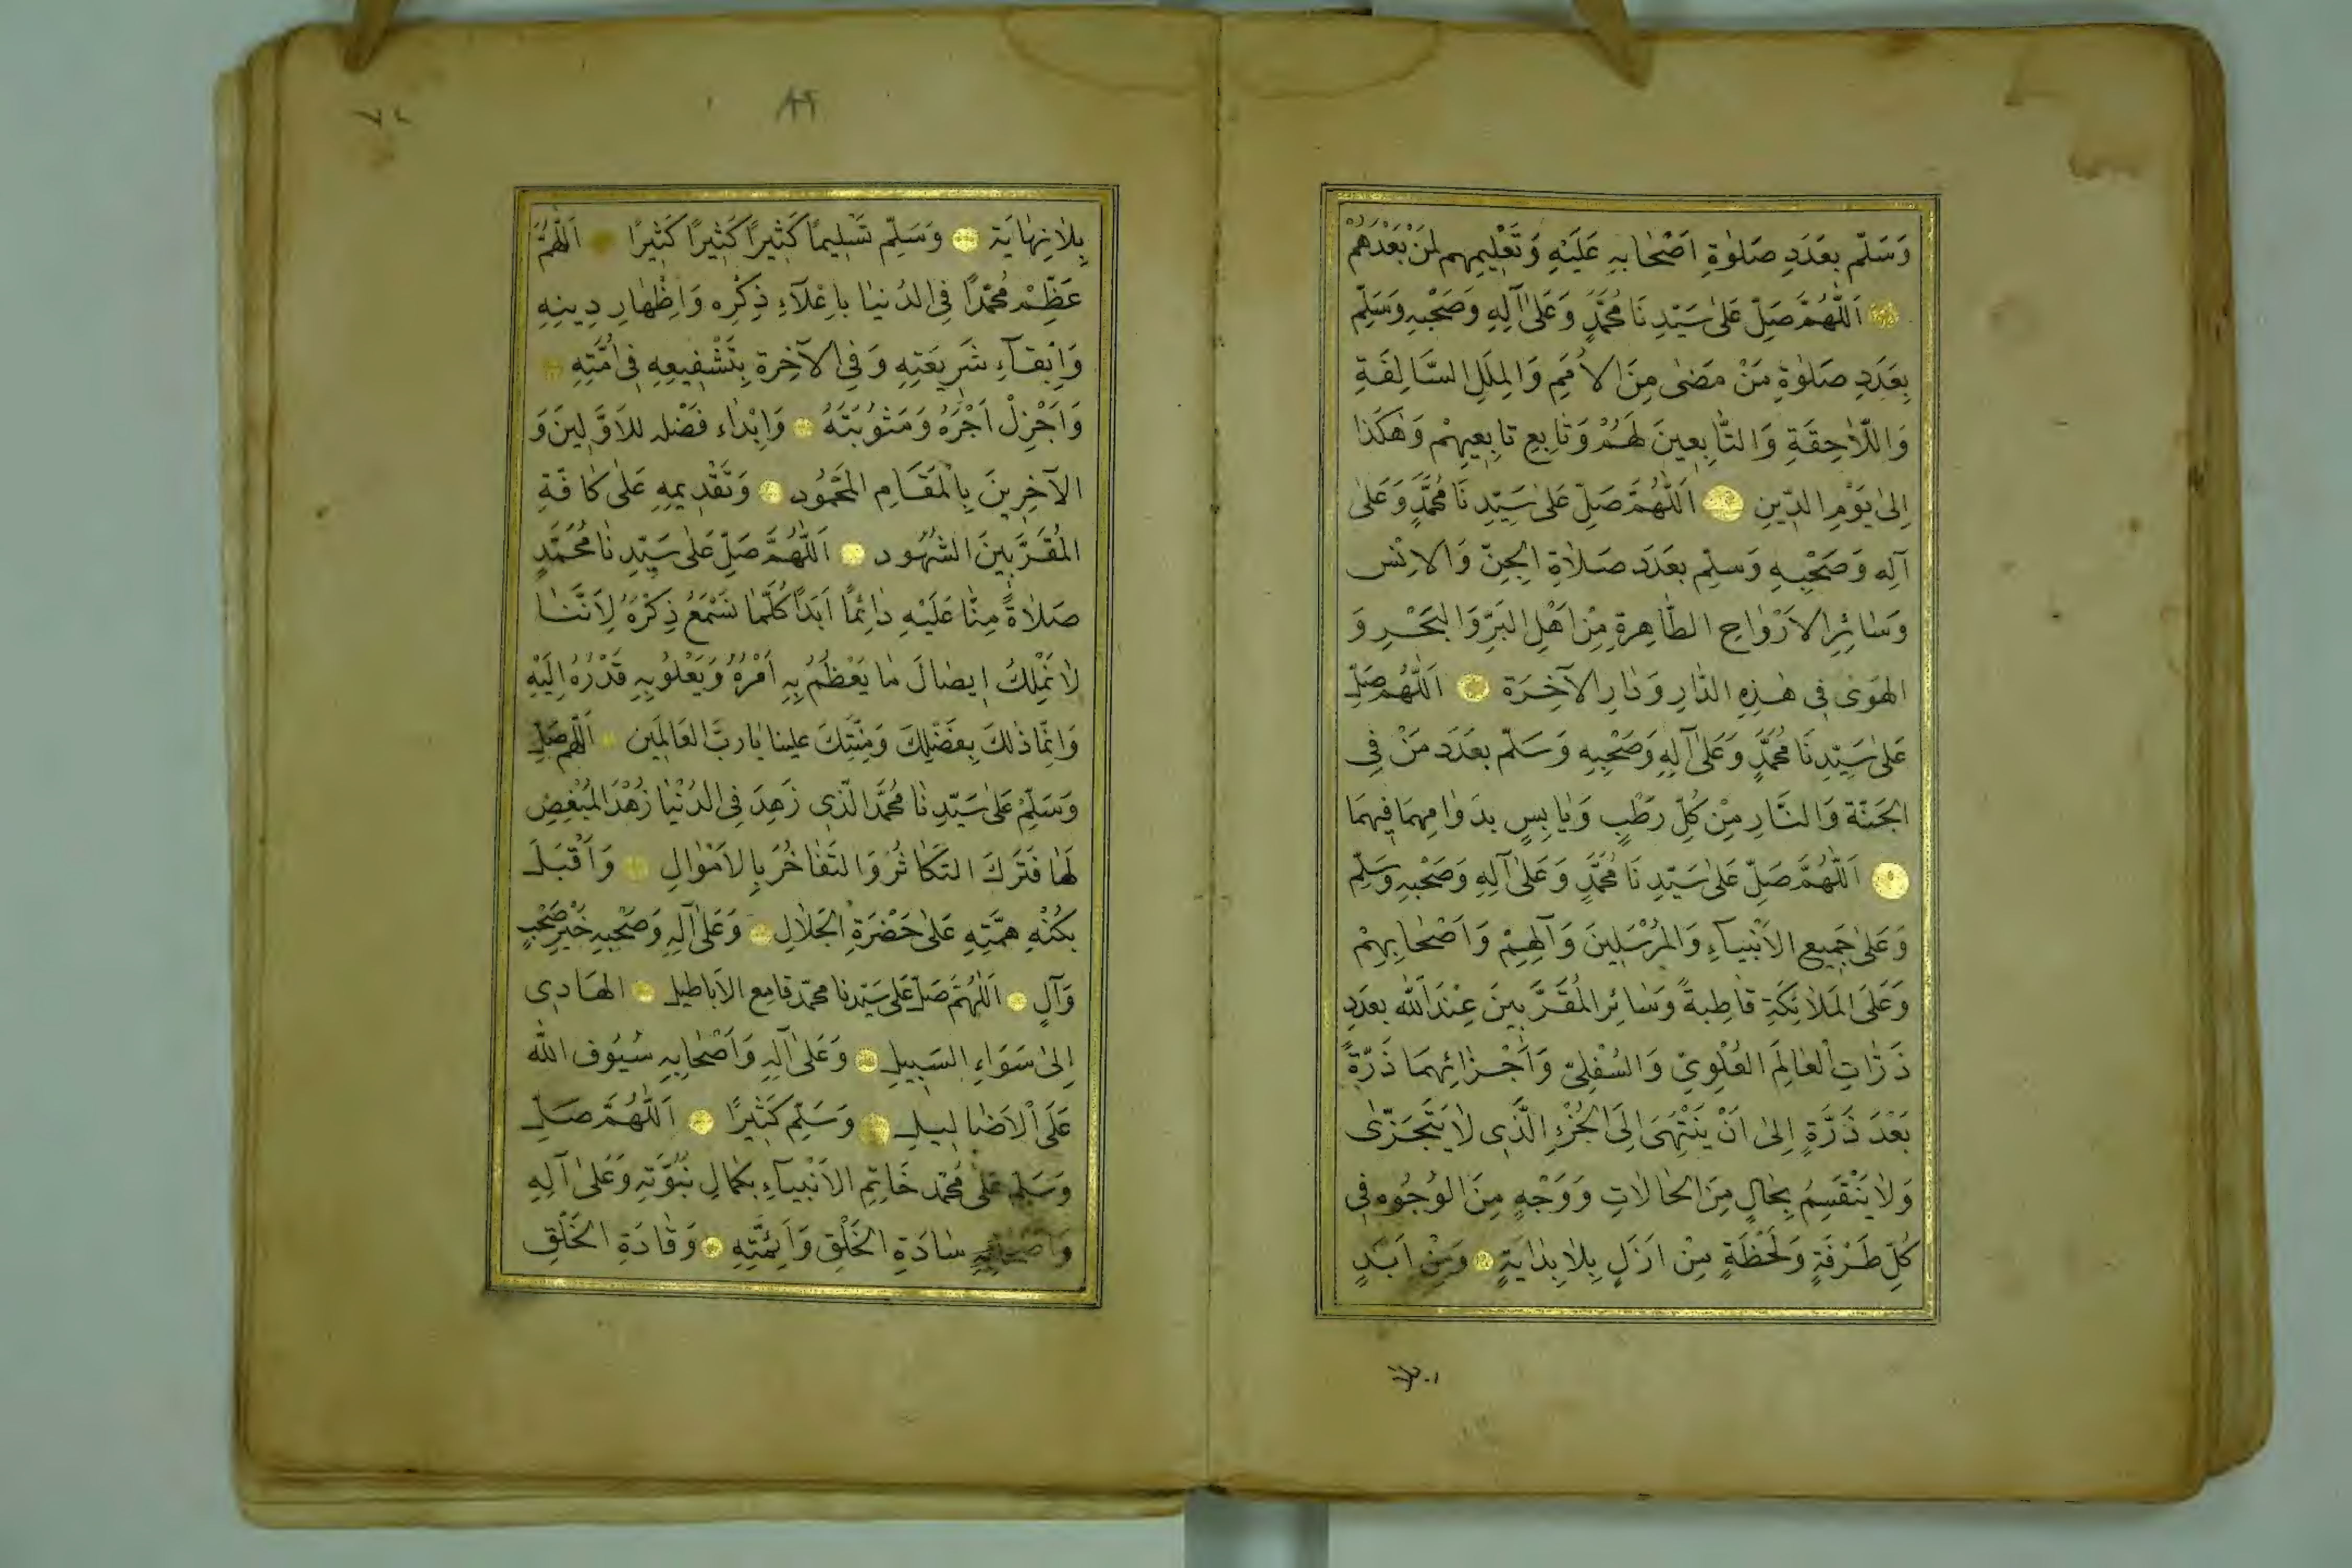 وَسَلِّم بِعَدَدِ صَلٰوةِ اَصْحٰابِهِ عَلَيْهِ وَتَعْلِيمِهِم لِمَنْ بَعْدَهُمْ
اَللّٰهُمَّ صَلِّ عَلٰى سَيِّدِنَا مُحَمَّدٍ وَعَلٰى آلِهِ وَصَحْبِهِ وَسَلِّمْ
بِعَدَدِ صَلٰوةِ مَنْ مَضٰى مِنَ الاُمَمِ وَالمِلَلِ السَّالِفَةِ
وَاللّاحِقَةِ وَالتّٰابِعينَ لَهُمْ وَتٰابِعِ تابِعِيهِمْ وَهٰكَذا
اِلىٰ يَوْمِ الدِّينِ اَللّٰهُمَّ صَلِّ عَلىٰ سَيِّدِنَا مُحَمَّدٍ وَعَلىٰ
آلِهِ وَصَحْبِهِ وَسَلِّمْ بِعَدَدِ صَلٰاةِ الجِنِّ وَالاِنْسِ
وَسٰائِرِ الاَرْوٰاحِ الطّٰاهِرةِ مِنْ اَهْلِ البَرِّ وَالبَحْرِ وَ
الهَوٰى فِي هٰذِهِ الدّٰارِ وَدٰارِ الآخِرَةِ اَللّٰهُمَّ صَلِّ
عَلىٰ سَيِّدِنَا مُحَمَّدٍ وَعَلىٰ آلِهِ وَصَحْبِهِ وَسَلِّمْ بِعَدَدِ مَنْ فِي
الجَنَّةِ وَالنَّارِ مِنْ كُلِّ رَطْبٍ وَيٰابِسٍ بِدَوٰامِهِمَا فِيهِمَا
اَللّٰهُمَّ صَلِّ عَلىٰ سَيِّدِنَا مُحَمَّدٍ وَعَلىٰ آلِهِ وَصَحْبِهِ وَسَلِّمْ
وَعَلىٰ جَمِيعِ الاَنْبِيَاءِ وَالمُرْسَلِينَ وَآلِهِمْ وَاَصْحٰابِهِمْ
وَعَلَى المَلاٰئِكَةِ قاٰطِبةً وَسٰائِرِ المُقَرَّبِينَ عِنْدَاللّٰه بِعَدَدِ
ذَرّٰاتِ الْعٰالَمِ العُلْوِيِّ وَالسُّفْلِيِّ وَاَجْزٰائِهِمَا ذَرَّةً
بَعْدَ ذَرَّةٍ اِلىٰ اَنْ يَنْتَهَى اِلَى الجُزْءِ الَّذِي لاٰ يَتَجَزّٰى
وَلاٰ يَنْقَسِمُ بِحٰالٍ مِنَ الحٰالاتِ وَوَجْهٍ مِنَ الوُجُوهِ فِي
كُلِّ طَرْفَةٍ وَلَحْظَةٍ مِنْ اَزَلٍ بِلاٰ بِدٰايَةٍ وَمِنْ اَبَدٍ
٧٤
بِلاٰ نِهٰايَةٍ وَسَلِّمْ تَسْلِيمًا كَثِيرًا كَثِيرًا كَثِيرًا اَللّٰهُمَّ
عَظِّمْ مُحَمَّدًا فِي الدُنيٰا بِاِعْلَآءِ ذِكْرِه وَاِظْهٰارِ دِينِهِ
وَاِبْقَآءِ شَرِيعَتِهِ وَفِي الآخِرةِ بِتَشْفِيعِهِ فِي اُمَّتِهِ
وَاَجْزِلْ اَجْرَهُ وَمَثوُبَتَهُ وَاِبْدٰاءِ فَضْلِهِ لِلاَوَّلِينَ وَ
الآخِرِينَ بِالْمَقَامِ المَحْمُودِ وَتَقْدِيمِهِ عَلىٰ كٰافَّةِ
المُقَرَّبِينَ الشُهُودِ اَللّٰهُمَّ صَلِّ عَلىٰ سَيِّدِنٰا مُحَمَّدٍ
صَلاٰةً مِنّٰا عَلَيْهِ دٰائِمًا اَبَدًا كُلَّمٰا نَسْمَعُ ذِكْرَهُ لِاَنَّنَا
لاٰ نَمْلِكُ اِيصٰالَ مٰا يَعْظُمُ بِهِ اَمْرُهُ وَيَعْلُو بِهِ قَدْرُهُ اِلَيْهِ
وَاِنَّمٰا ذٰلكَ بِفَضْلِكَ وَمِنَّتِكَ علينا يٰا رَبَّ العَالَمِين اَللّٰهُمَّ صَلِّ
وَسَلِّمْ عَلىٰ سَيِّدِنٰا مُحَمَّدٍ الَّذِي زَهِدَ فِي الدُنْيٰا زُهْدَ المُبْغِضِ
لَهٰا فَتَرَكَ التَكٰاثُرَ وَالتَفٰاخُرَ بِالاَمْوٰالِ وَاَقْبَلَ
بِكُنْهِ هِمَّتِهِ عَلىٰ حَضْرَةِ الجَلاٰلِ وَعَلىٰ آلِهِ وَصَحْبِهِ خَيْرِ صَحْبٍ
وَآلٍ اَللّٰهُمَّ صَلِّ عَلىٰ سَيِّدنا محمّد قامِع الاَباطيل الهَادِي
اِلىٰ سَوَاءِ السَبِيلِ وَعَلىٰ آلِهِ وَاَصْحٰابِهِ سُيُوفِ اللّٰه
عَلَى الْاَضٰالِيلِ وَسَلِّمْ كَثِيرًا اَللّٰهُمَّ صَلِّ
وَسَلِّمْ عَلىٰ مُحَمّد خَاتِمِ الاَنْبِيَآءِ بِكَمٰالِ نُبُوَّتِهِ وَعَلىٰ آلِهِ
سٰادَةِ الخَلْقِ وَاَئِمَّتِهِ وَقٰادَةِ الخَلْقِ